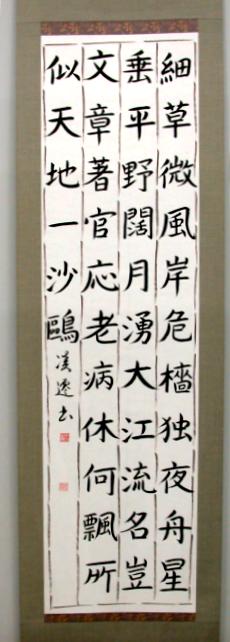 細草微風岸危檣独夜舟星
垂平野闊月湧大江流名豈
文章著官応老病休何飄所
似天地一沙鷗